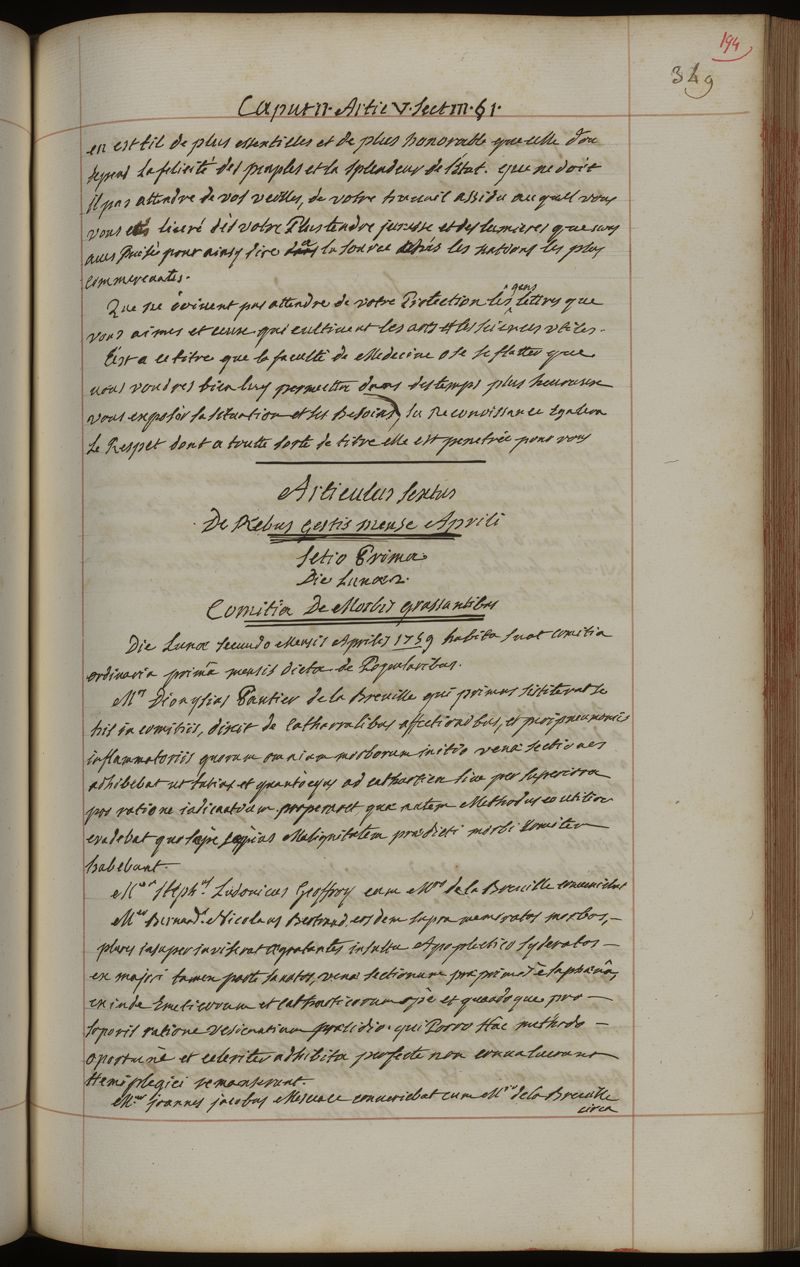 194
349
Caput II. Artic V. Sect III. §1.
en est til de plus essentielles et de plus honorable que celle dou
depend la felicité des peuples et la splendeur de l'Etat. que ne doit
il pas attendre de vos veilles, de votre travail assidu au quel vous
vous etes livré dès votre Plus tendre jeunesse et des lumieres que vous
aves Puisé pour ainsy dire dans la source les nations les plus
commercantes.
Que ne doivent pas attendre de votre Protection les gens lettres que
vous aimes et ceux qui cultivent les arts et les sciences utiles.
C'est a ce titre que la faculté de Medecine ose se flatter que
vous voudres bien luy permettre dans des temps plus heureux
vous exposer sa situation et ses Besoins, sa reconnoissance egalera
Le Respet dont a toutte sorte de titre elle est penetrée pour vous
Articulus sextus
De Rebus gestis mense Aprili
Setio Prima
Die Lunæ 2.
Comitia De Morbis grassantibus
Die Lunæ secundo Mensis Aprilis 1759 habita sunt comitia
ordinaria prima mensis dicta de Popularibus.
Mr Dionysius Gautier de la Breuille qui primus stiterat se
his in comitiis, dixit de Catharralibus affectionibus, et peripneumoniis
inflammatoriis quorum omnium morborum initio venæ sectiones
adhibebat ut tutius et quantocyus ad cathartica
pro ratione indicantium properaret quæ autem Methodus eo utilior
evadebat quo sæpe sæpius Malignitatem prædicti morbi comitem
habebant.
Mer Steph. Ludovicus Geoffroy cum Mro de la Breuille conveniebat
Mer Bernard. Nicolaus Bertrand eosdem supra memoratos morbos,
plures insuper inviserat ægrotantes insultu Apoplectico syderatos
ex majori tamen parte sanatos, venæ sectionum præprimis e saphæna,
exinde Emeticorum et Catharticorum ope et quandoque pro
soporis ratione vesicantium præsidio. qui Porro Hac methodo
oportune et celeriter adhibita perfecte non convaluerunt
Hemiplegici remanserunt.
Mer joannes jacobus Messence conveniebat cum Mro de la Breuille
circa